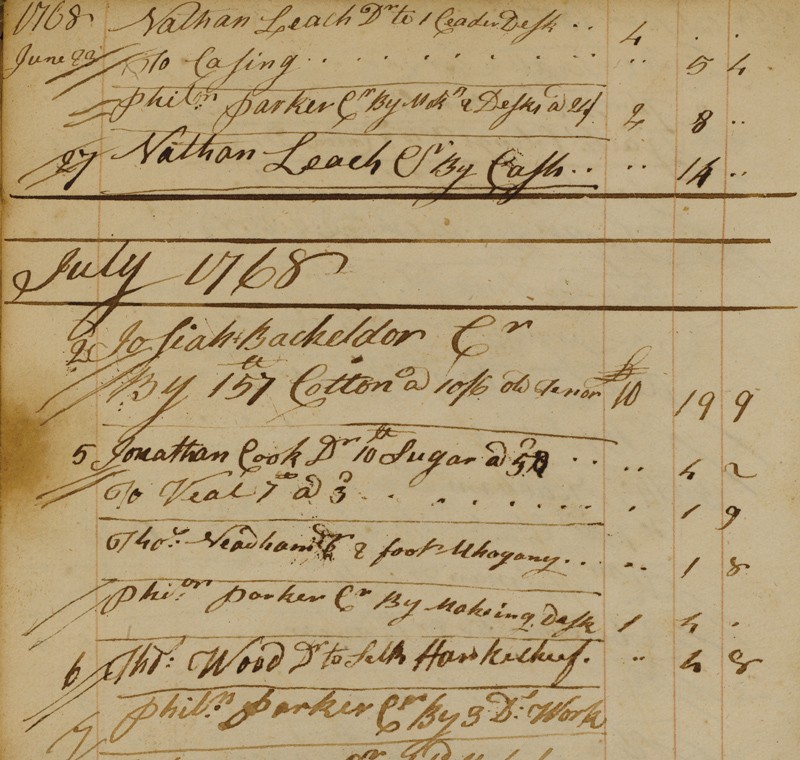 1768 Nathan Leach Dr to 1 Ceader Desk .. 4 . .
June 22 To Casing .. 5 4
Philn Parker Cr By Makn 2 Desks a 24/ 2 8 ..
27 Nathan Leach Cr By Cash .. .. 14 ..
July 1768
2 Josiah Backeldor Cr
By 157 lb Cotton a 10/6 old Tenor £10 19 9
5 Jonathan Cook Dr 10 lb Sugar a 5d .. 4 2
To Veal 7 lb a 3d . 1 9
Thos Neadham Dr 2 foot Mhogany .. .. 1 8
Philon Parker Cr By Makeing Desk 1 4 .
6 Thos Wood Dr to Silk Hankecheef. .. 4 8
7 Philn Parker Cr By 3 Ds Work